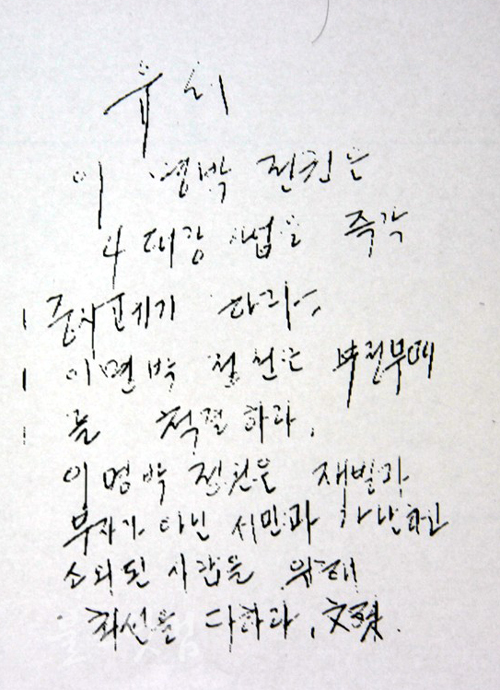 유서
이 명박 정권은
4 대강 사업을 즉각
중지폐기 하라.
이명박 정권은 부정부패
를 척결하라.
이명박 정권은 재벌과
부자가 아닌 서민과 가난하고
소외된 사람을 위해
최선을 다하라. 文殊.